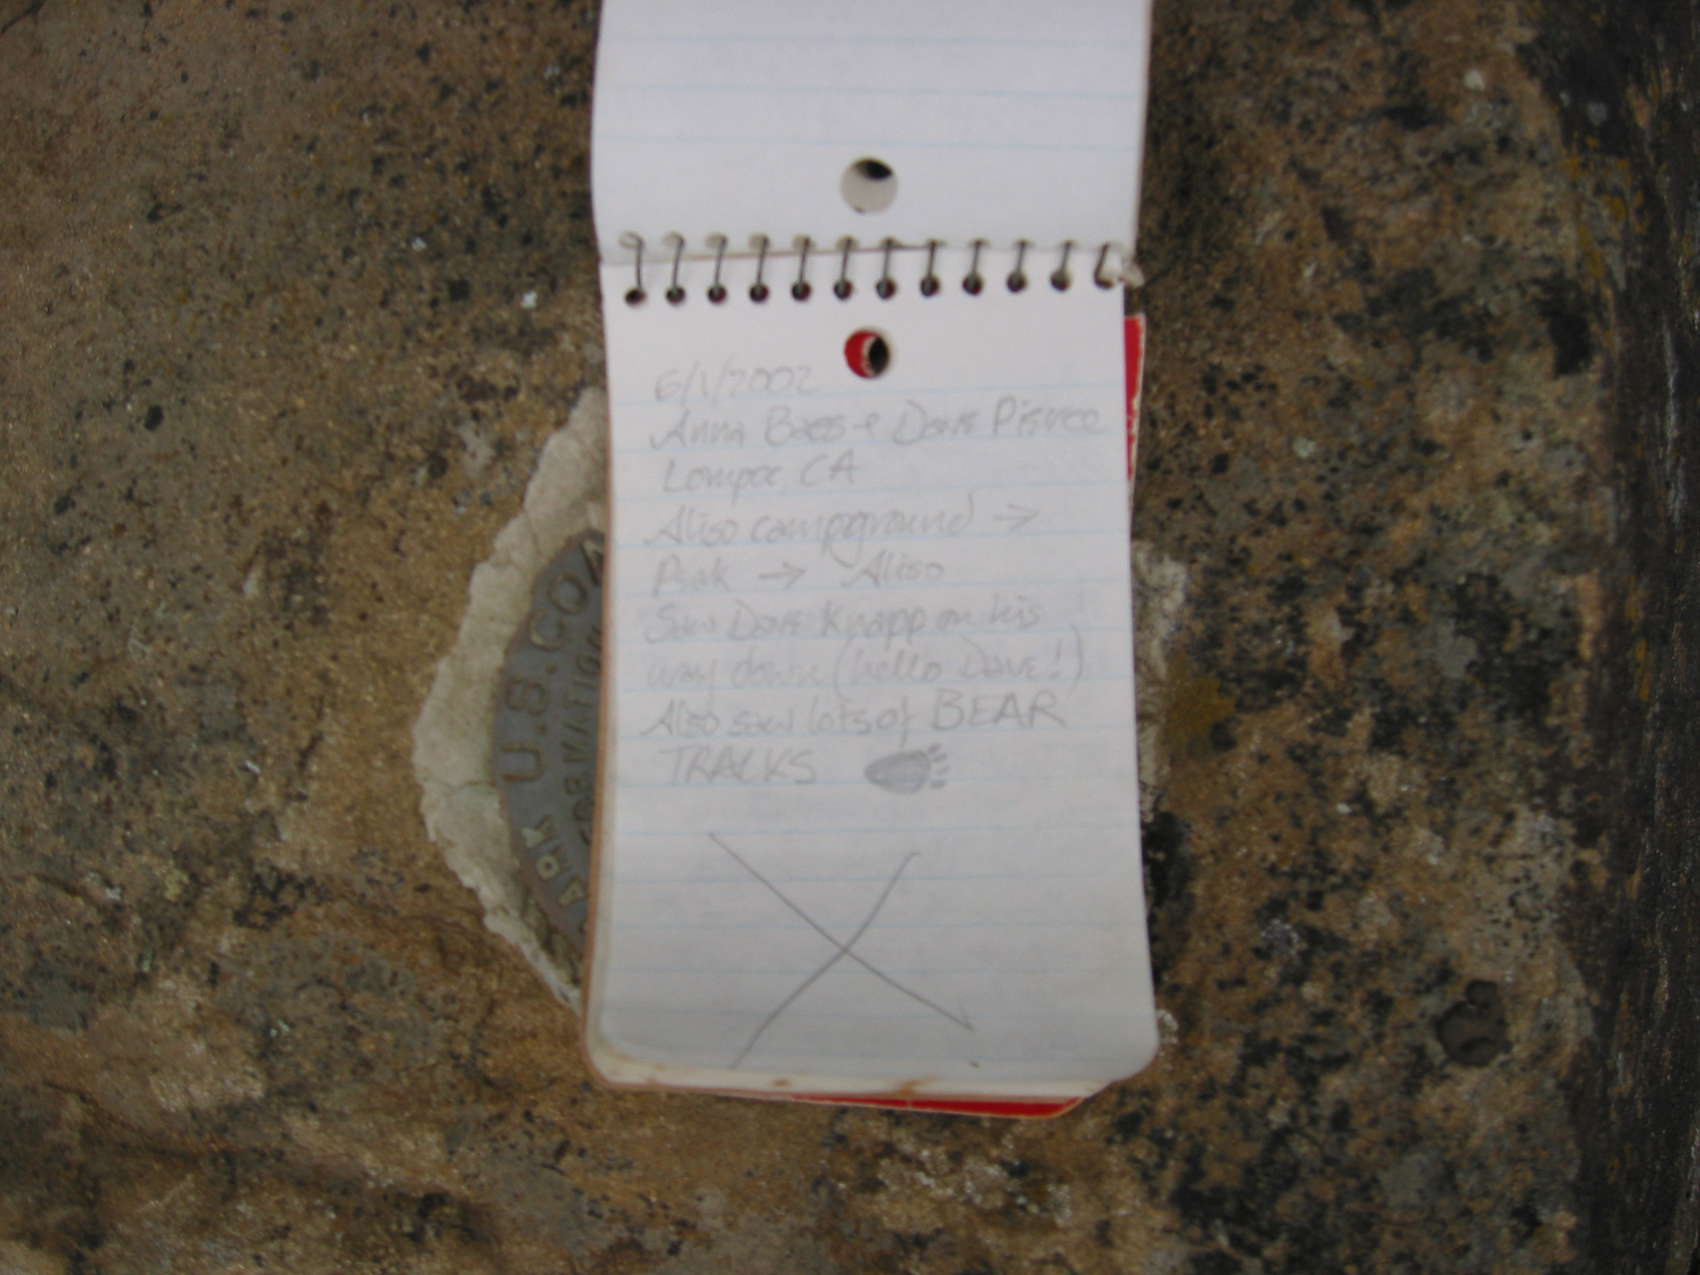 6/1/2002
Anna Bass & Dave Pierce
Lompoc CA
Aliso campground →
Peak → Aliso
Saw Dave Knapp on his
way down (hello Dave!)
Also saw lots of BEAR
TRACKS
U.S.COA